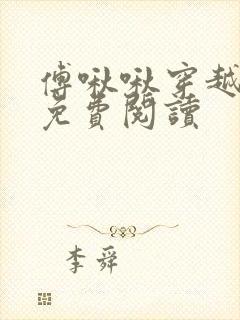 傅啾啾穿越
免費閱讀
李舜